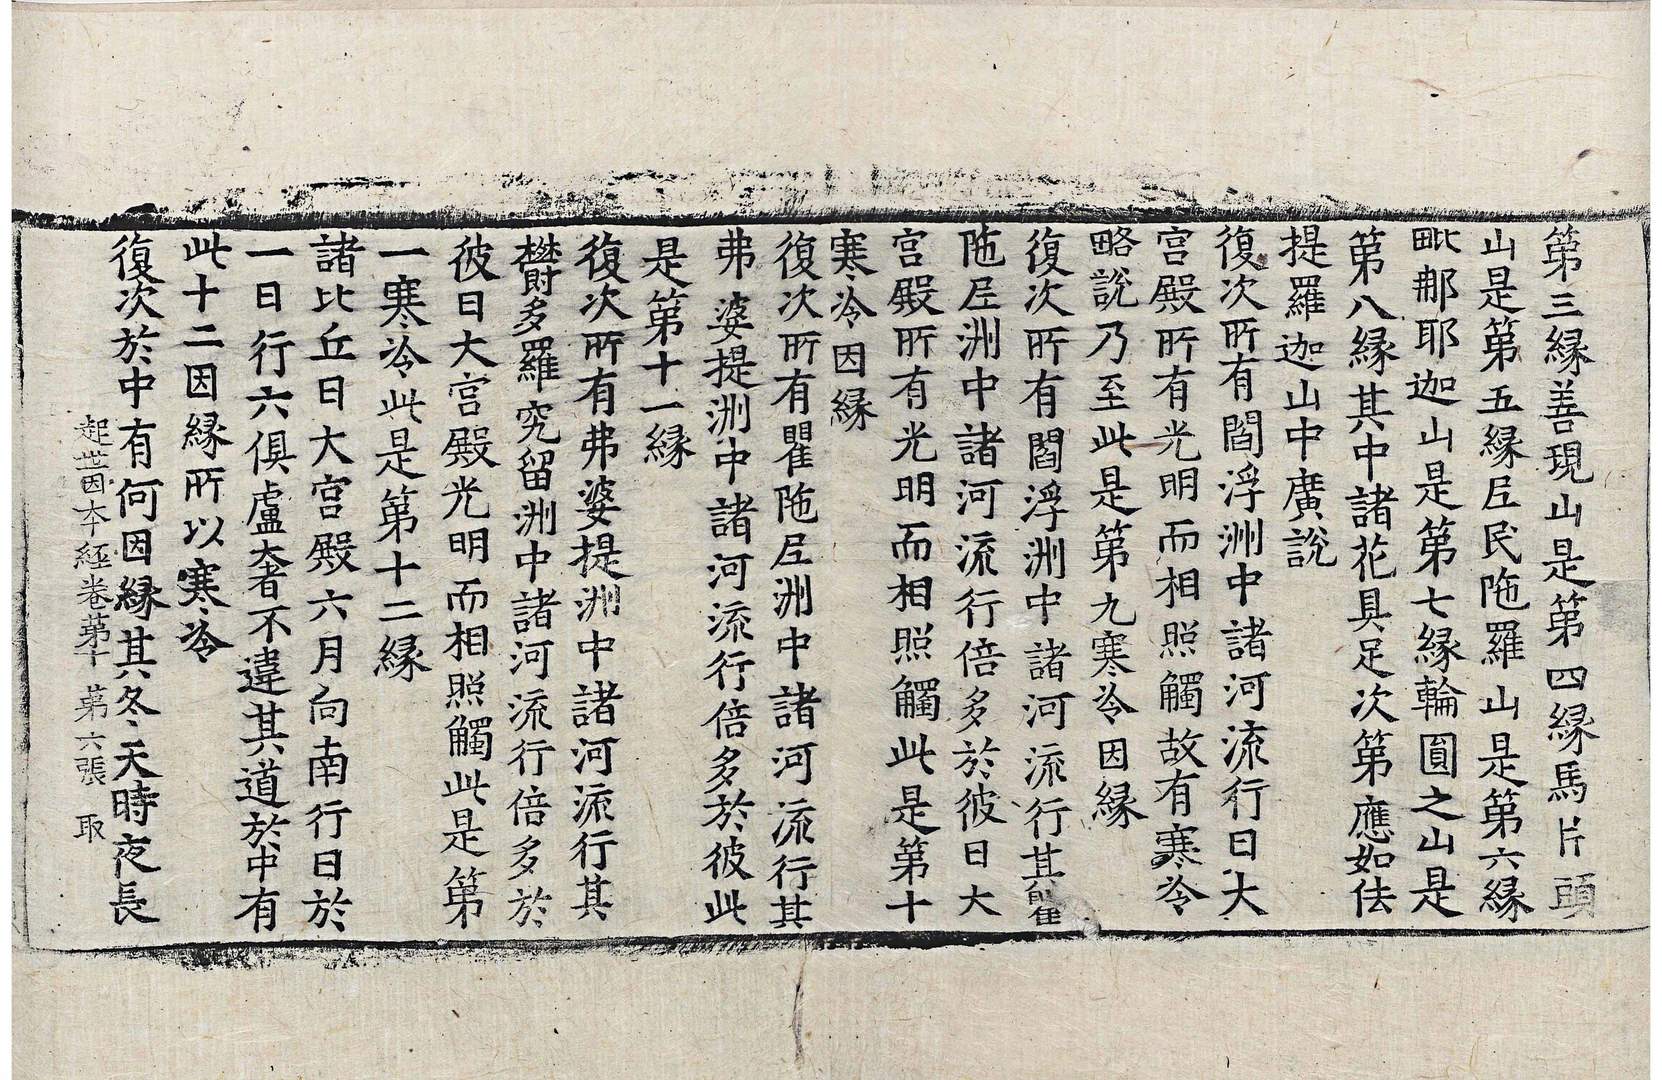 第三縁善現山是第四縁馬片頭
山是第五縁𡰱民陁羅山是第六縁
毗那耶迦山是第七縁輪圓之山是
第八縁其中諸花具足次第應如佉
提羅迦山中廣說
復次所有閻浮洲中諸河流行日大
宮殿所有光明而相照觸故有寒冷
略說乃至此是第九寒冷因縁
復次所有閻浮洲中諸河流行其瞿
陁𡰱洲中諸河流行倍多於彼日大
宮殿所有光明而相照觸此是第十
寒冷因縁
復次所有瞿陁𡰱洲中諸河流行其
弗婆提洲中諸河流行倍多於彼此
是第十一縁
復次所有弗婆提洲中諸河流行其
欝多羅究留洲中諸河流行倍多於
彼日大宮殿光明而相照觸此是第
一寒冷此是第十二縁
諸比丘日大宮殿六月向南行日於
一日行六俱盧奢不違其道於中有
此十二因縁所以寒冷
復次於中有何因縁其冬天時夜長
起世因本經卷第十 第六張 取